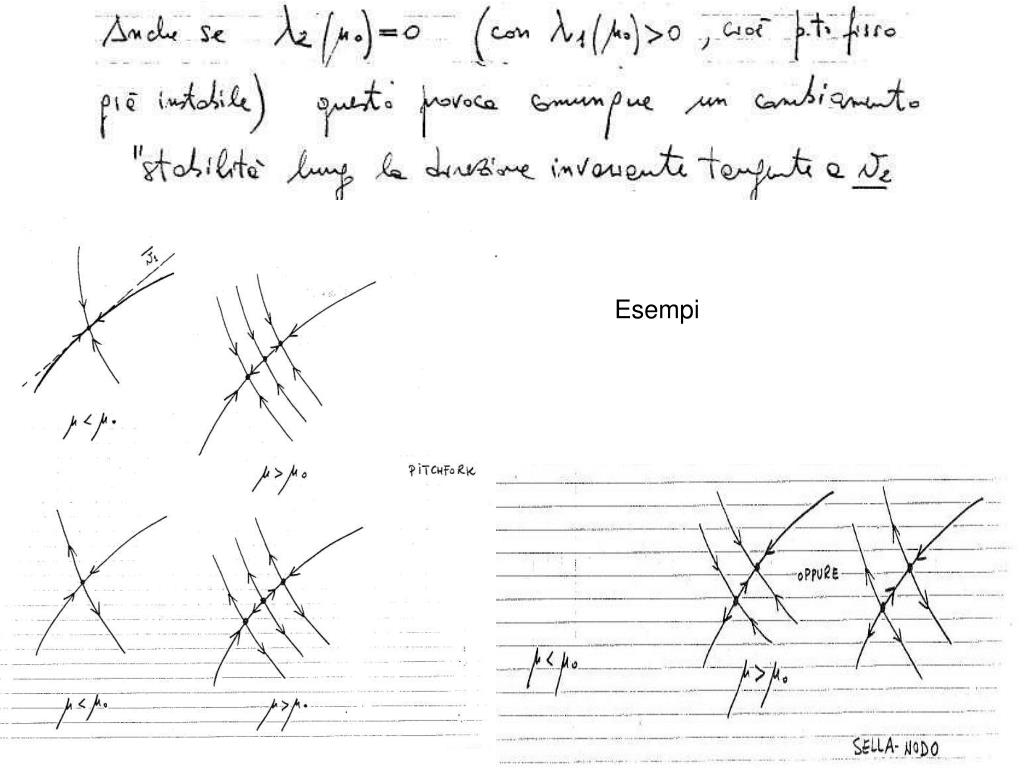 Anche se λ₂(μ₀)=0 (con λ₁(μ₀)>0, cioè p.to fisso
già instabile) questo provoca comunque un cambiamento
"stabilità lungo la direzione invariante tangente a v₂
Esempi
μ<μ₀
μ>μ₀
PITCHFORK
μ<μ₀
μ>μ₀
OPPURE
μ<μ₀
μ>μ₀
SELLA-NODO